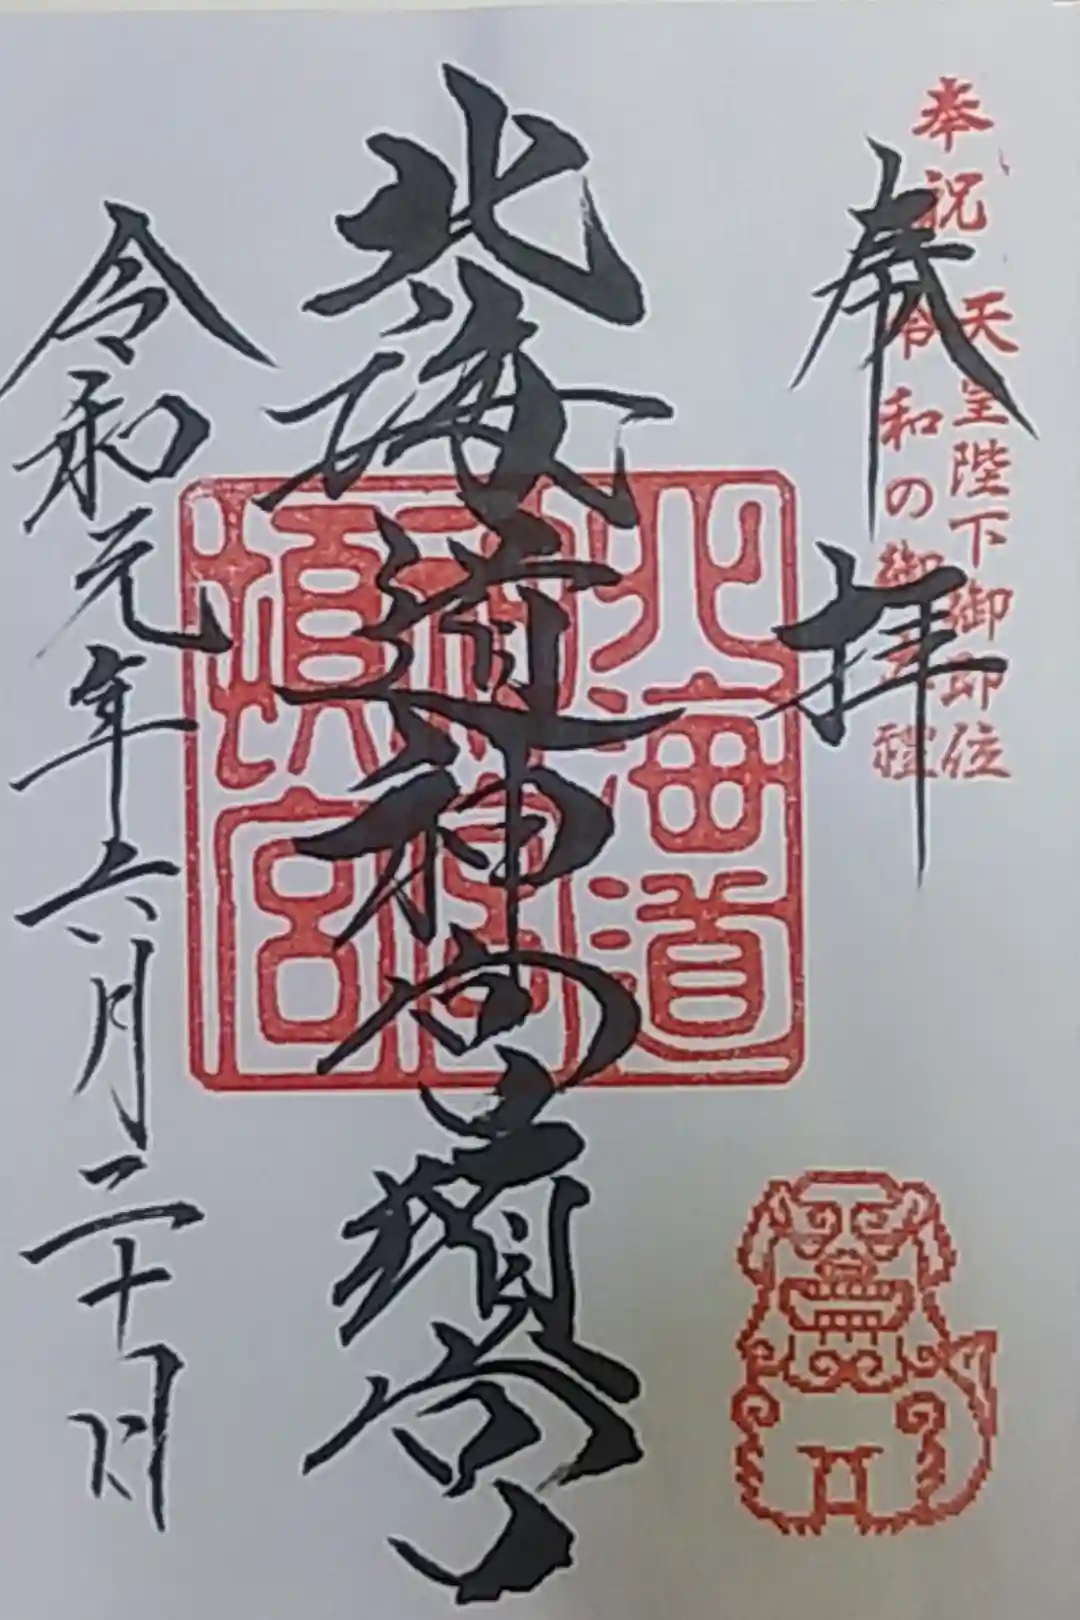 奉祝
天皇陛下御即位
令和の御大禮
奉拝
北海道神宮頓宮
北海道
神宮
頓宮
令和元年六月二十日